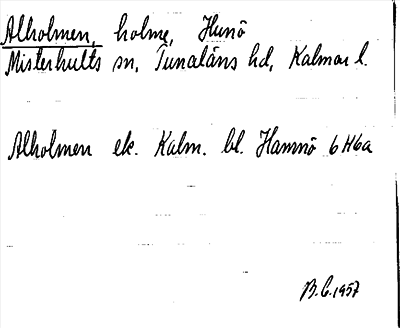 Alholmen, holme, Hunö
Misterhults sn, Tunaläns hd, Kalmar l.
Alholmen ek. Kalm. bl. Hamnö 6 H6a
B.C. 1957